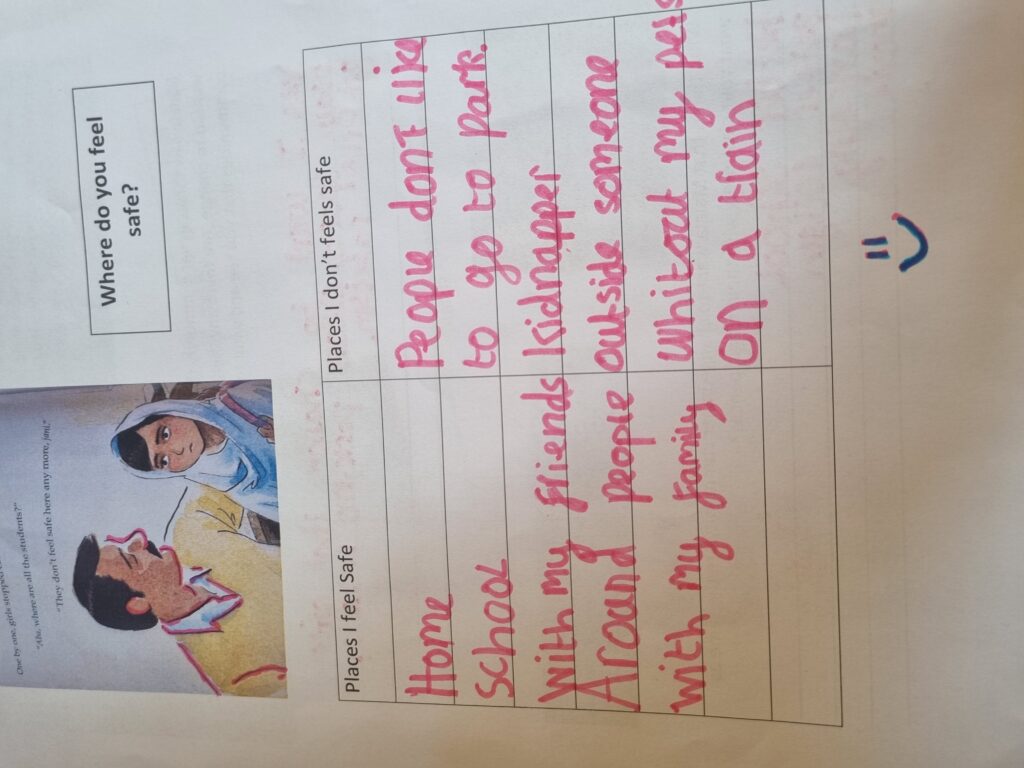 One by one, girls stopped
"Aba, where are all the students?"
"They don't feel safe here any more, jani."
Where do you feel
safe?
Places I feel Safe
Places I don't feels safe
Home
People dont like
School
to go to park.
With my friends
kidnapper
Around people
outside someone
with my family
whitout my pets
on a train